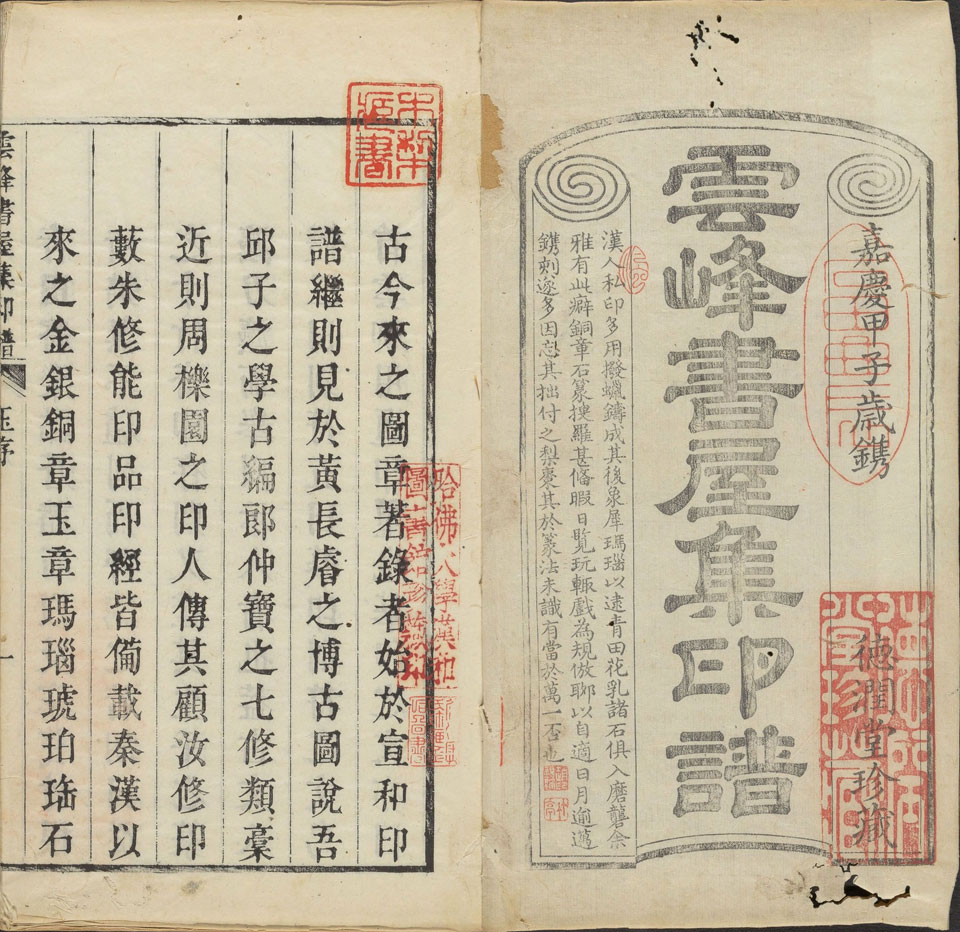 嘉慶甲子歲鐫
德潤堂珍藏
雲峰書屋集印譜
漢人私印多用撥蠟鑄成其後象犀瑪瑙以逮青田花乳諸石俱入磨礱余
雅有此癖銅章石篆搜羅甚備暇日覧玩輙戲為規倣聊以自適日月逾邁
鐫刻遂多因忘其拙付之梨棗其於篆法未識有當於萬一否也
哈佛大學漢和
圖書館珍藏印
古今來之圖章著錄者始於宣和印
譜繼則見於黃長睿之博古圖說吾
邱子之學古編郎仲寶之七修類稾
近則周櫟園之印人傳其顧汝修印
藪朱修能印品印經皆備載秦漢以
來之金銀銅章玉章瑪瑙琥珀珤石
雲峰書屋集印譜
序
一